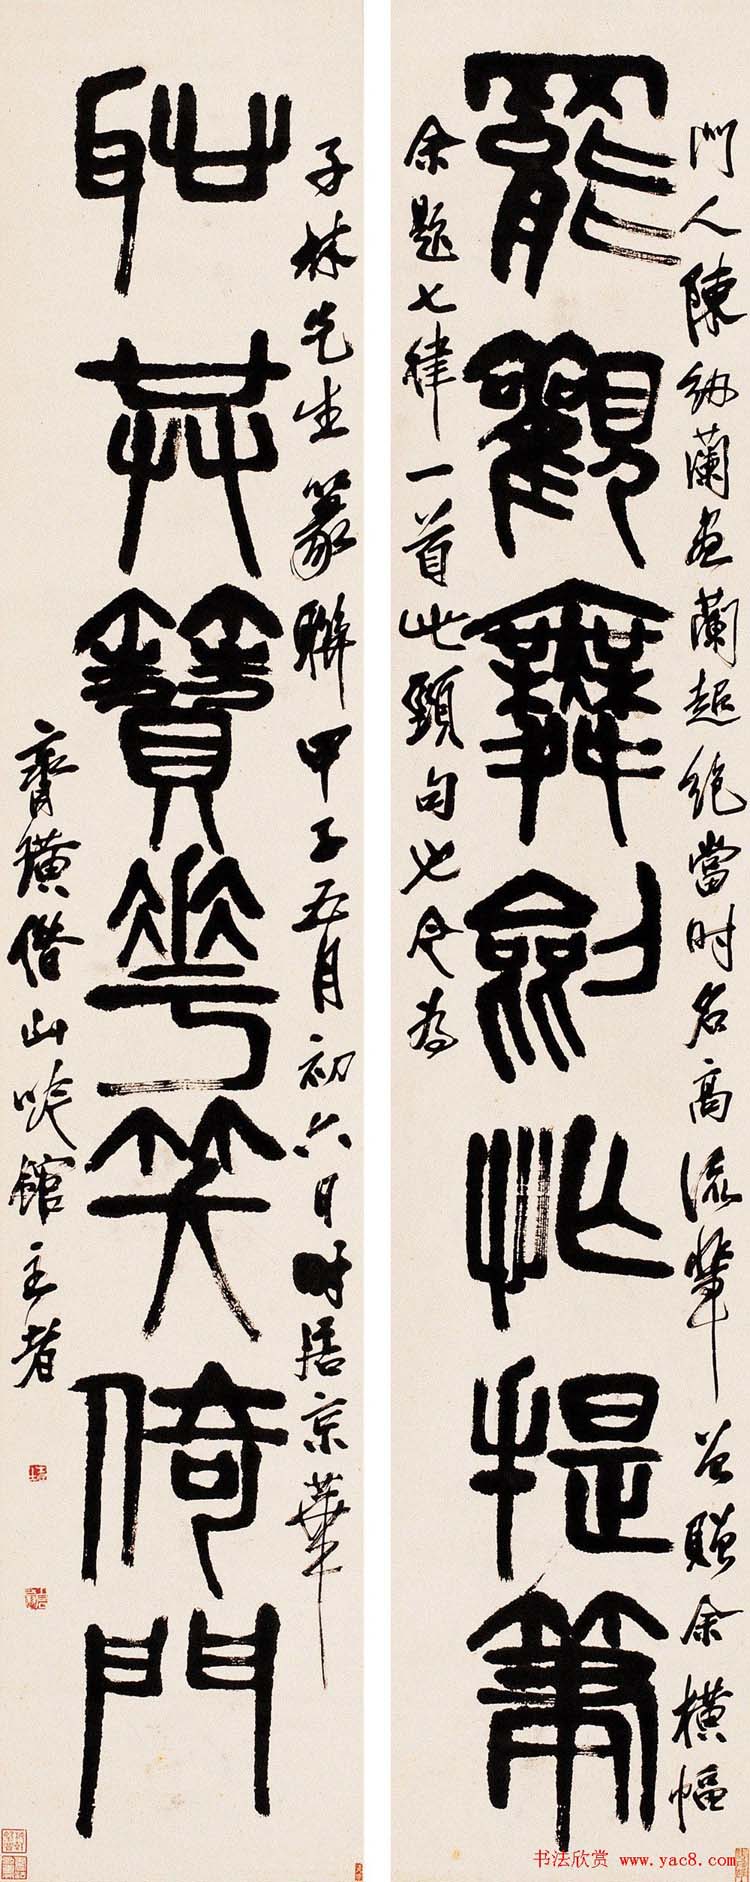 門人陳紉蘭畫蘭超絕當時名高流輩曾贈余橫幅
罷觀舞劍忙提筆
余題七律一首此頸句也今為
子林先生篆聯甲子五月初六日時居京華
耻共簪花笑倚門
齊璜借山吟館主者
书法欣赏 www.yac8.com